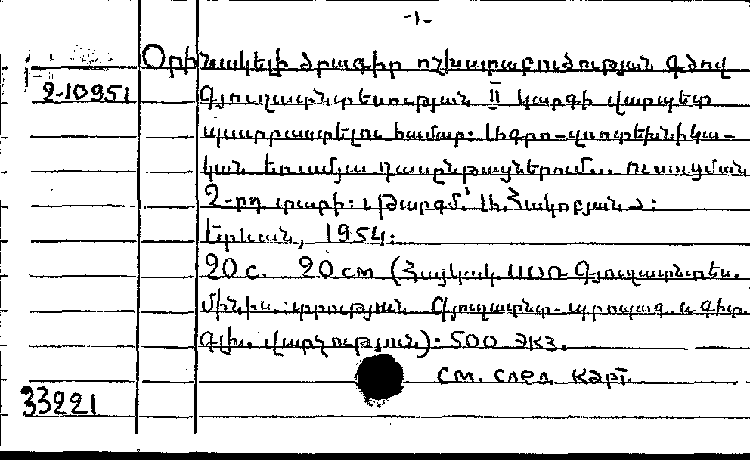 -1-
Օրինակելի ծրագիր ոչխարաբուծության գծով
2-10951 Գյուղատնտեսության II կարգի վարպետ
պատրաստելու համար: Ագրո-զոոտեխնիկա-
կան եռամյա դասընթացներում... ուսուցման
2-րդ տարի: Թարգմ.՝ Ա. Հակոբյան:
Երևան, 1954:
20 с. 20 см (Հայկական ՍՍՌ Գյուղատնտես.
մինիս-տրություն Գյուղատնտ. պրոպագ. և գիտ.
գլխ. վարչություն): 500 экз.
см. след. карт.
33221